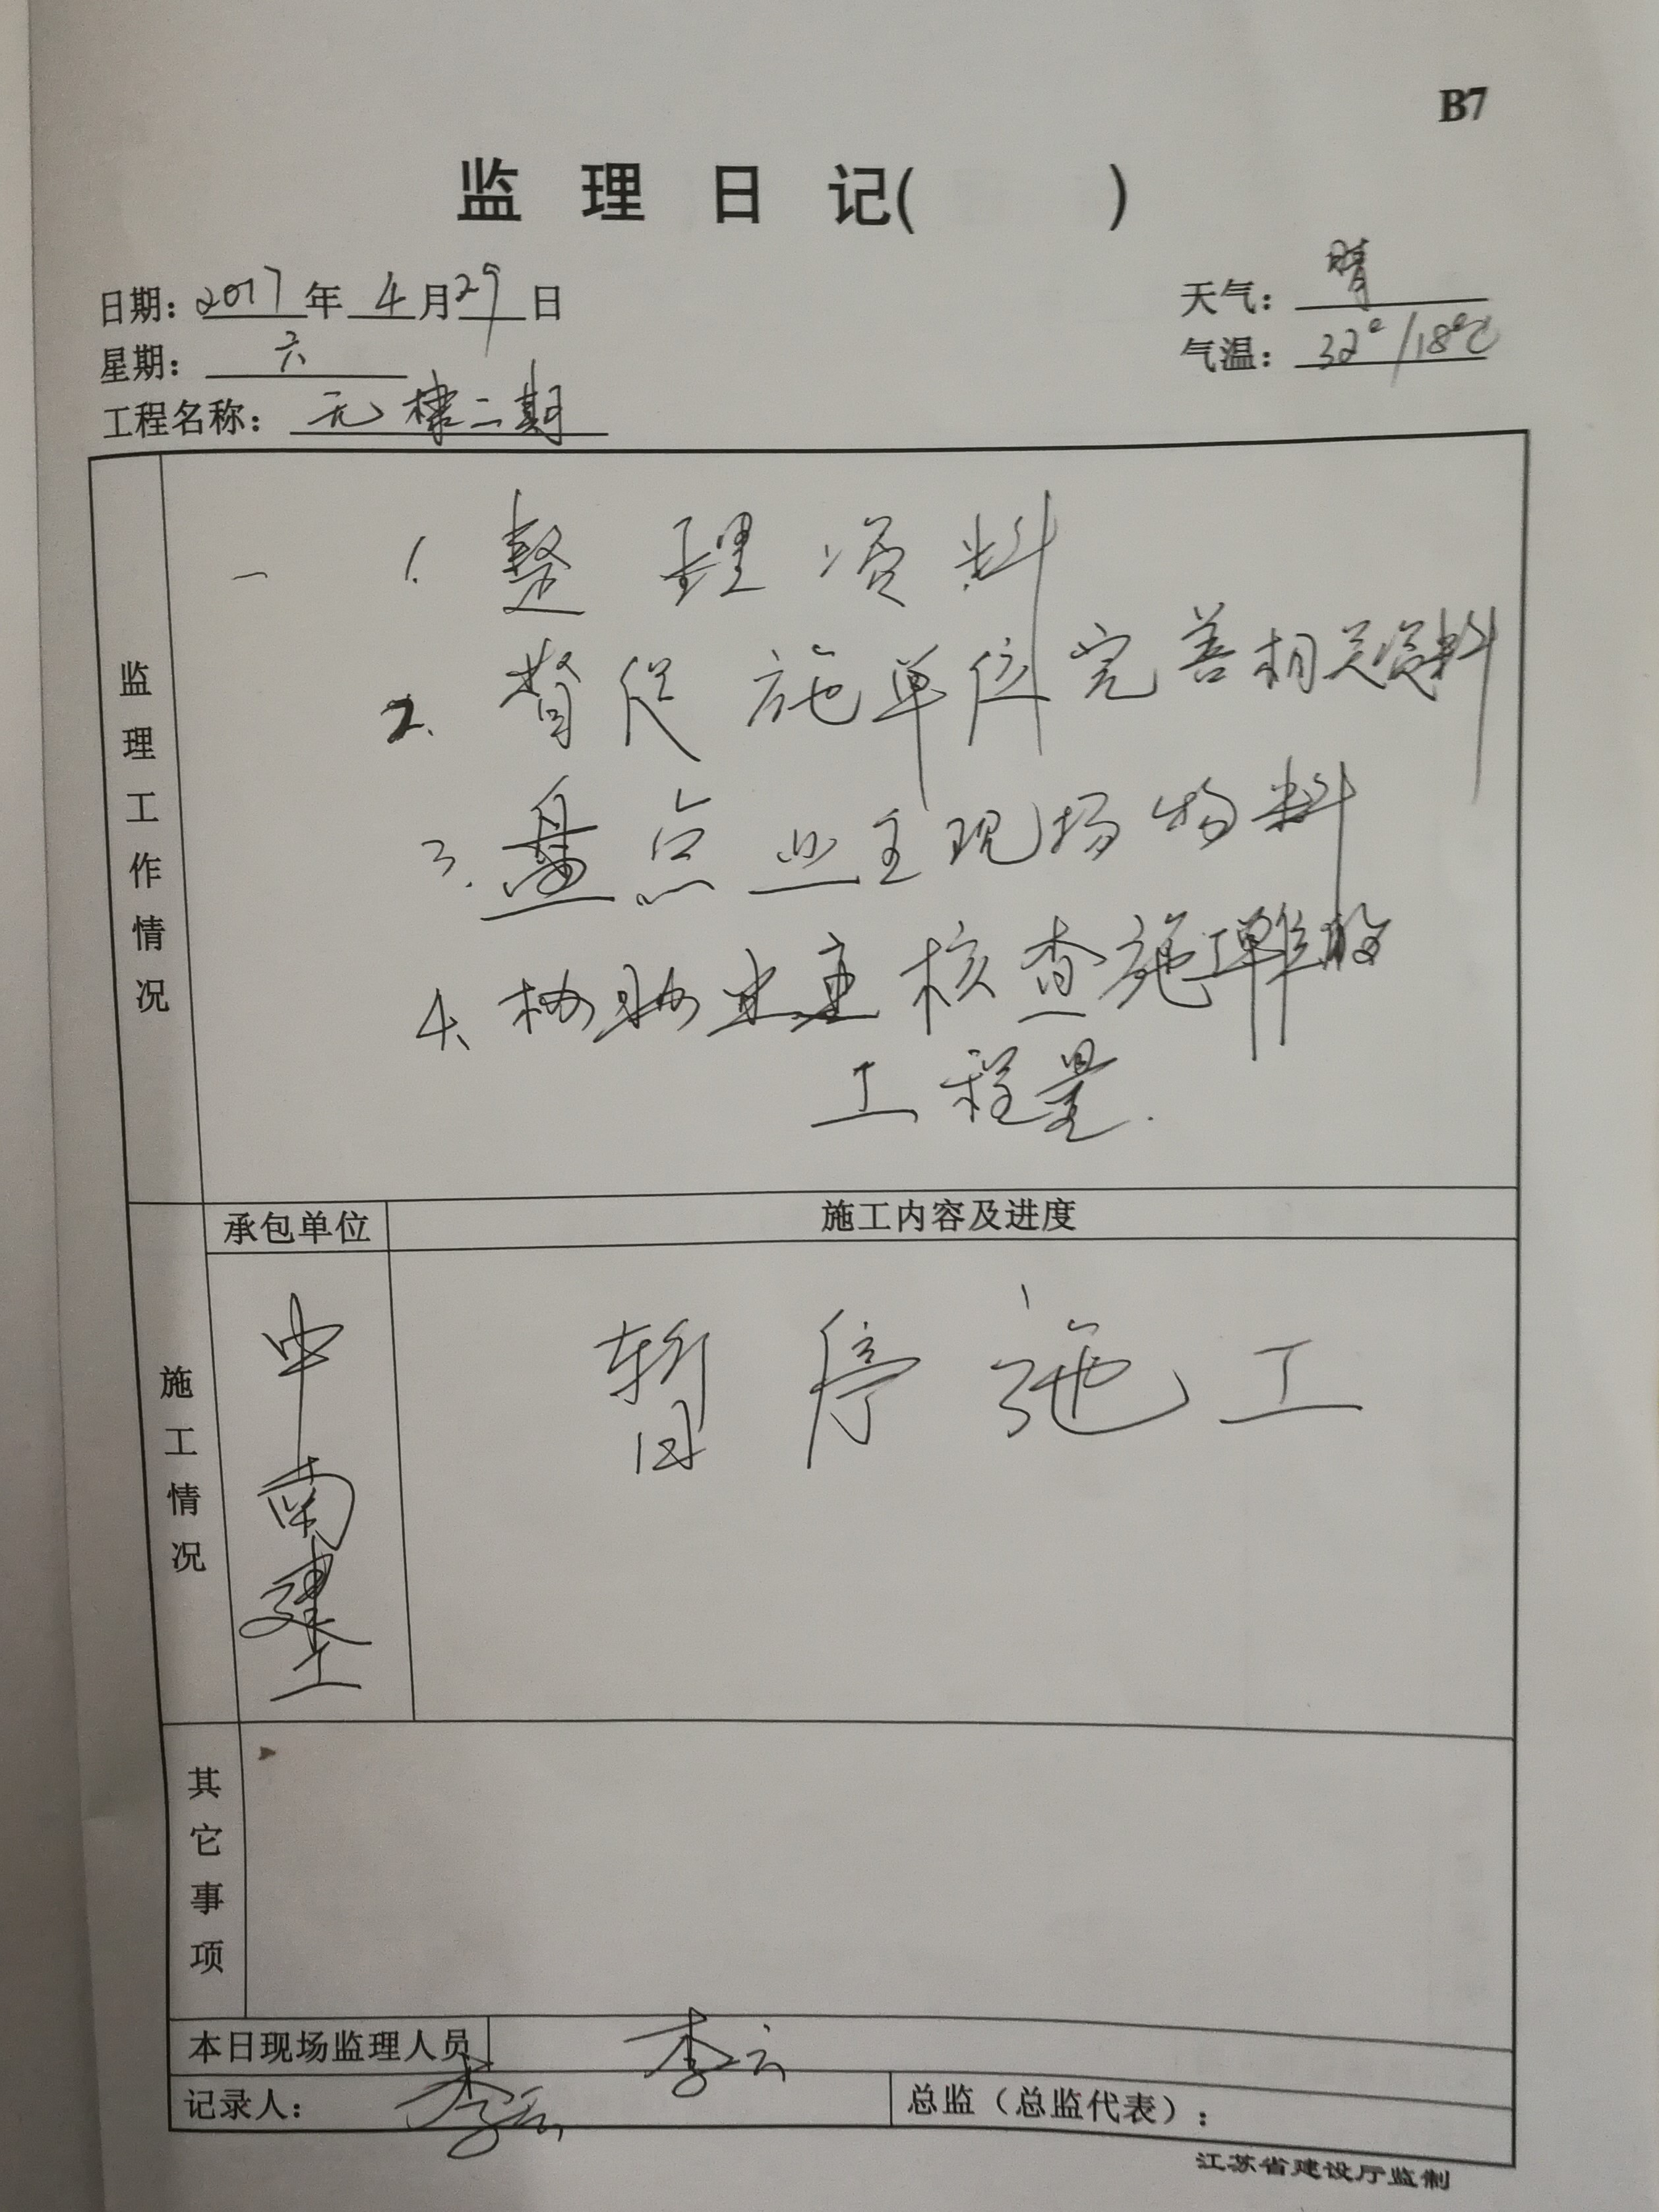 B7
监理日记( )
日期：2017年4月29日
天气：晴
星期：六
气温：32°/18℃
工程名称：无棣二期
监理工作情况
一 1. 整理资料
2. 督促施单位完善相关资料
3. 盘点业主现场物料
4、协助业主核查施工单位
工程量.
承包单位
施工内容及进度
施工情况
中南建工
暂停施工
其它事项
本日现场监理人员
李云
记录人：李云
总监（总监代表）：
江苏省建设厅监制